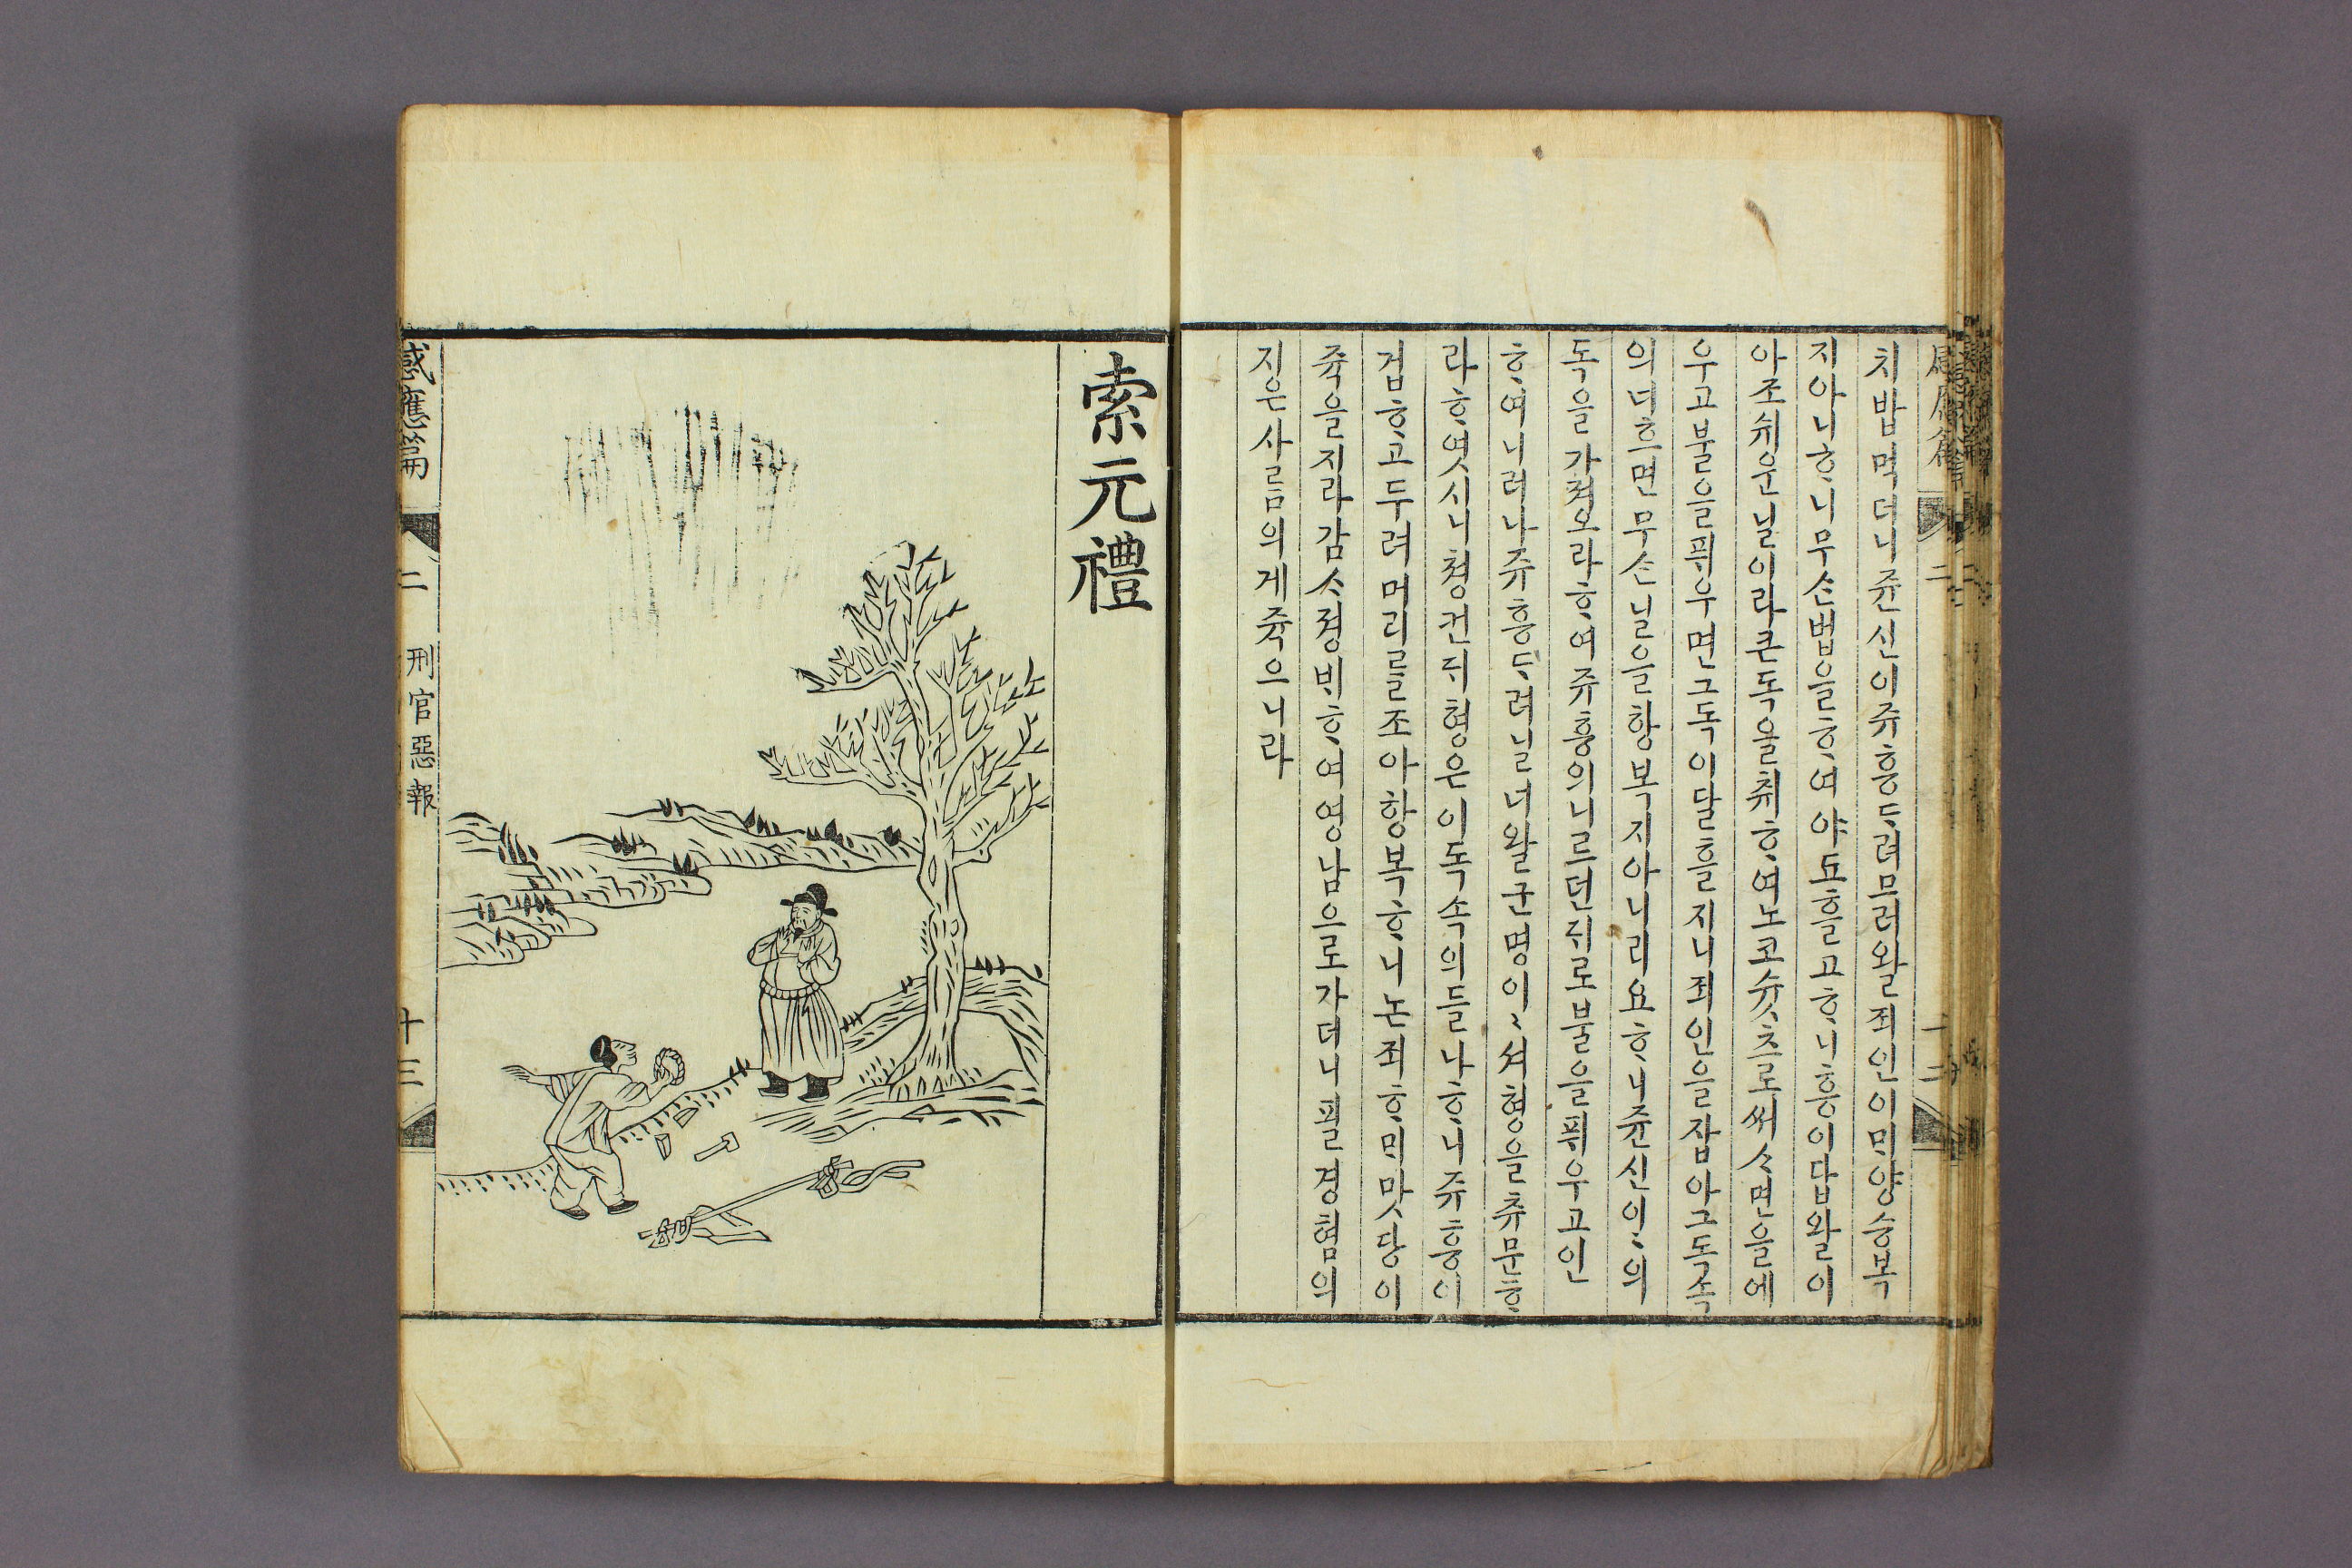 치밥먹더니쥰신이쥬흥ᄃᆞ려므러왈죄인이ᄆᆡ양승복
지아니ᄒᆞ니무슨법을ᄒᆞ여야됴흘고ᄒᆞ니흥이답왈이
아조쉬운닐이라큰독을취ᄒᆞ여노코슛츠로써ᄉᆞ면을에
우고불을픠우면그독이달흘지니죄인을잡아그독속
의너흐면무슨닐을항복지아니리요ᄒᆞ니쥰신이〻의
독을가져오라ᄒᆞ여쥬흥의니르던ᄃᆡ로불을픠우고인
ᄒᆞ여니러나쥬흥ᄃᆞ려닐너왈군명이〻셔형을츄문ᄒᆞ
라ᄒᆞ엿시니쳥컨ᄃᆡ형은이독속의들나ᄒᆞ니쥬흥이
겁ᄒᆞ고두려머리를조아항복ᄒᆞ니논죄ᄒᆞᄆᆡ맛당이
쥭을지라감ᄉᆞ졍ᄇᆡᄒᆞ여영남으로가더니필경혐의
지은사ᄅᆞᆷ의게쥭으니라
索元禮
感應篇
二
刑官惡報
十三